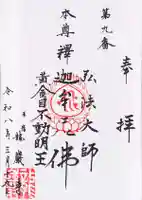 奉拝
第九番
弘法大師
本尊釋迦牟尼佛
黄金目不動明王
令和八年三月十九日